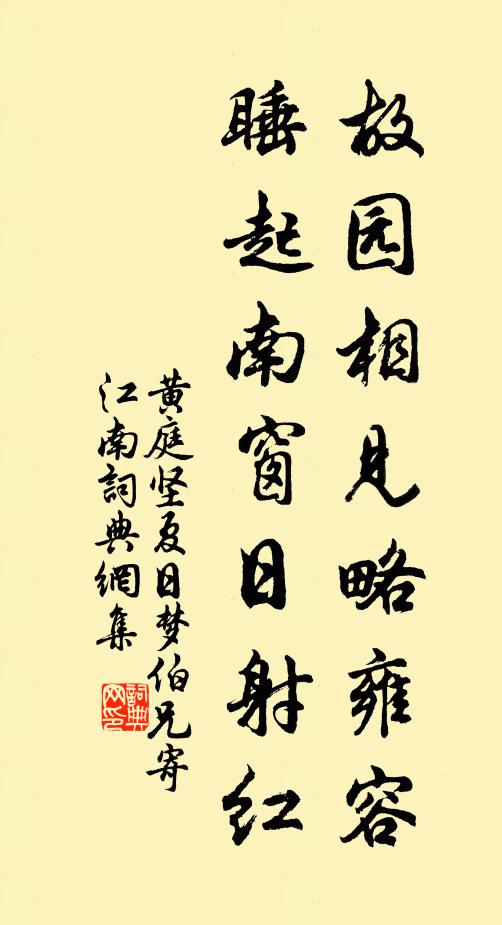 故园相见略雍容
睡起南窗日射红
黄庭坚夏日梦伯兄寄
江南詞典網集
詞典
网印